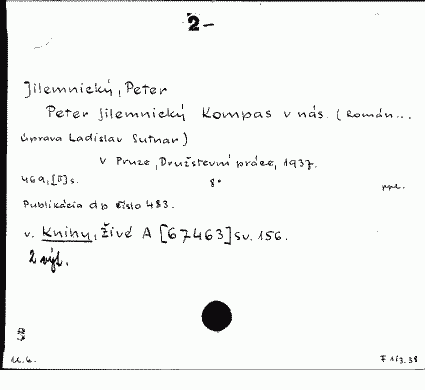 2-
Jilemnický, Peter
Peter Jilemnický Kompas v nás. (Román...
úprava Ladislav Sutnar)
V Praze, Družstevní práce, 1937.
469, [II] s. 8° ppl.
Publikácia dp číslo 483.
v. Knihy, živé A [67463] sv. 156.
2 výt.
U.k. F 1/3.38